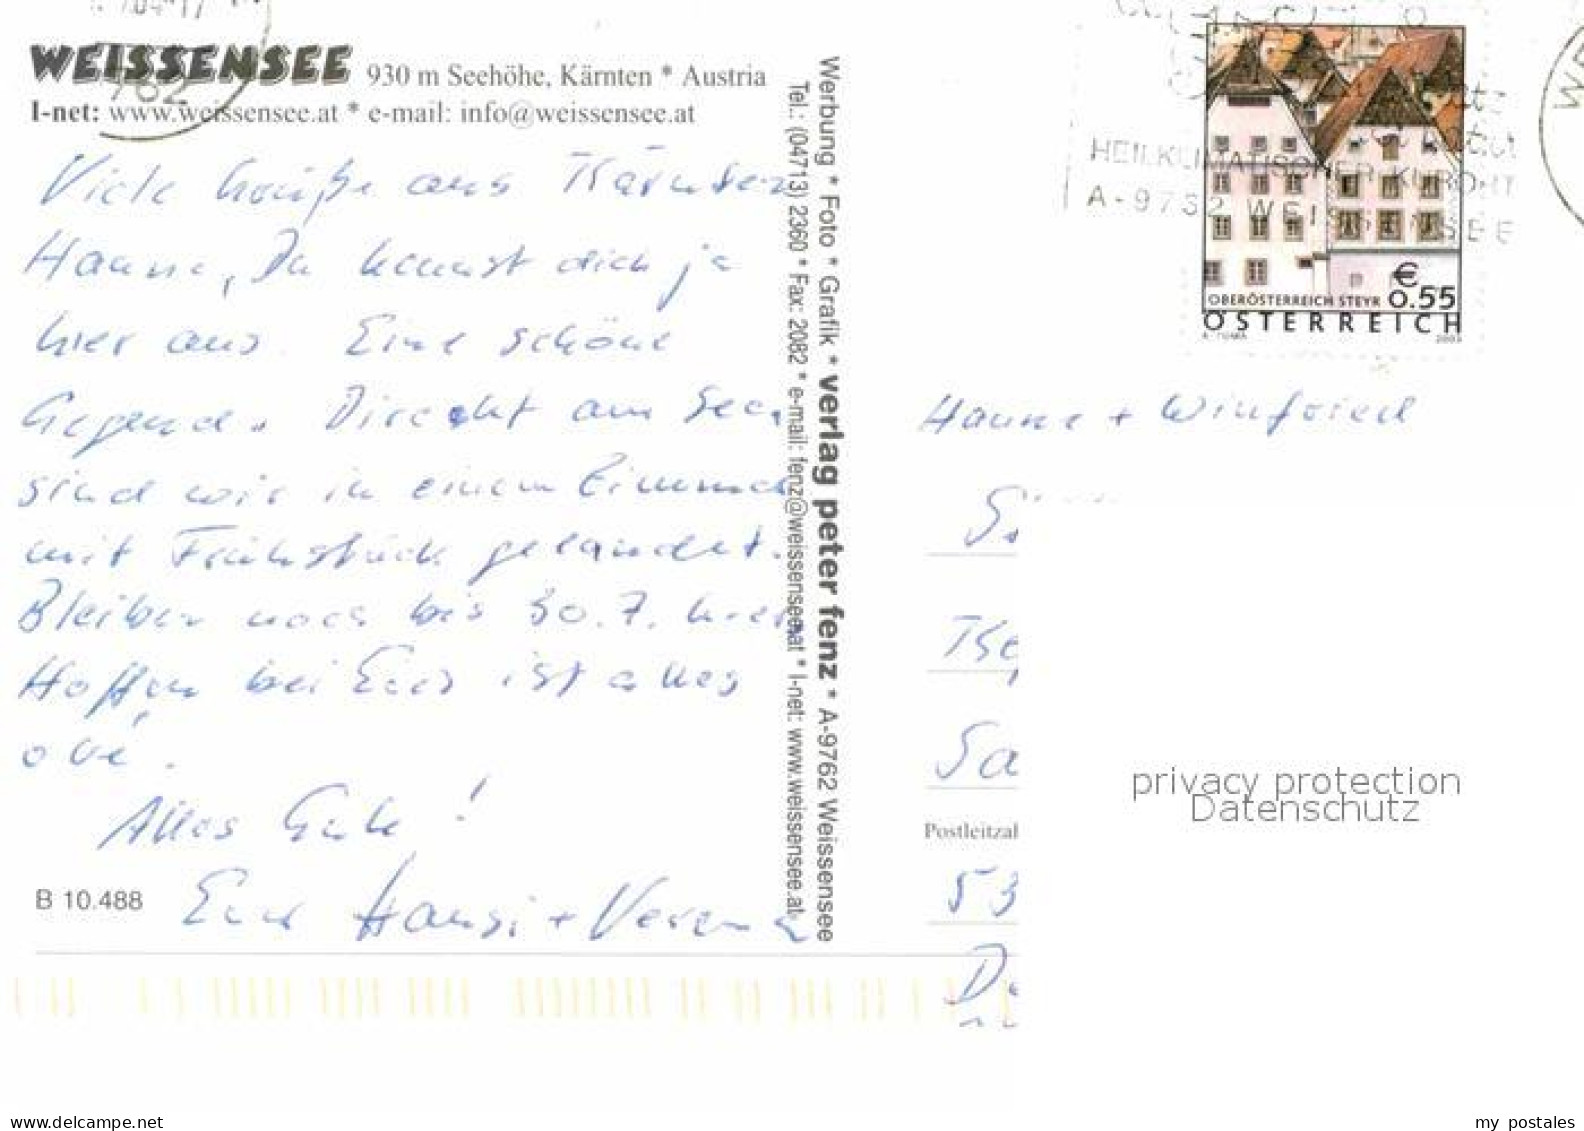 7.04-17
WEISSENSEE 930 m Seehöhe, Kärnten * Austria
9762
I-net: www.weissensee.at * e-mail: info@weissensee.at
Viele Grüße aus Kärnten
Hanne, Du kennst dich ja
hier aus. Eine schöne
Gegend. Direckt am See,
sind wir in einem Zimmer
mit Frühstück gelandet.
Bleiben noch bis 30.7. hier
Hoffen bei Euch ist alles
oke.
Alles Gute!
Eure Hansi + Verena
B 10.488
Werbung * Foto * Grafik * verlag peter fenz * A-9762 Weissensee
Tel.: (04713) 2360 * Fax: 2082 * e-mail: fenz@weissensee.at * I-net: www.weissensee.at
HEILKLIMATISCHER KURORT
A-9762 WEISSENSEE
WE
€
0.55
OBERÖSTERREICH STEYR
ÖSTERREICH
A. TUMA 2003
Hanne + Winfried
Sa
Postleitzal
53
privacy protection
Datenschutz
my postales